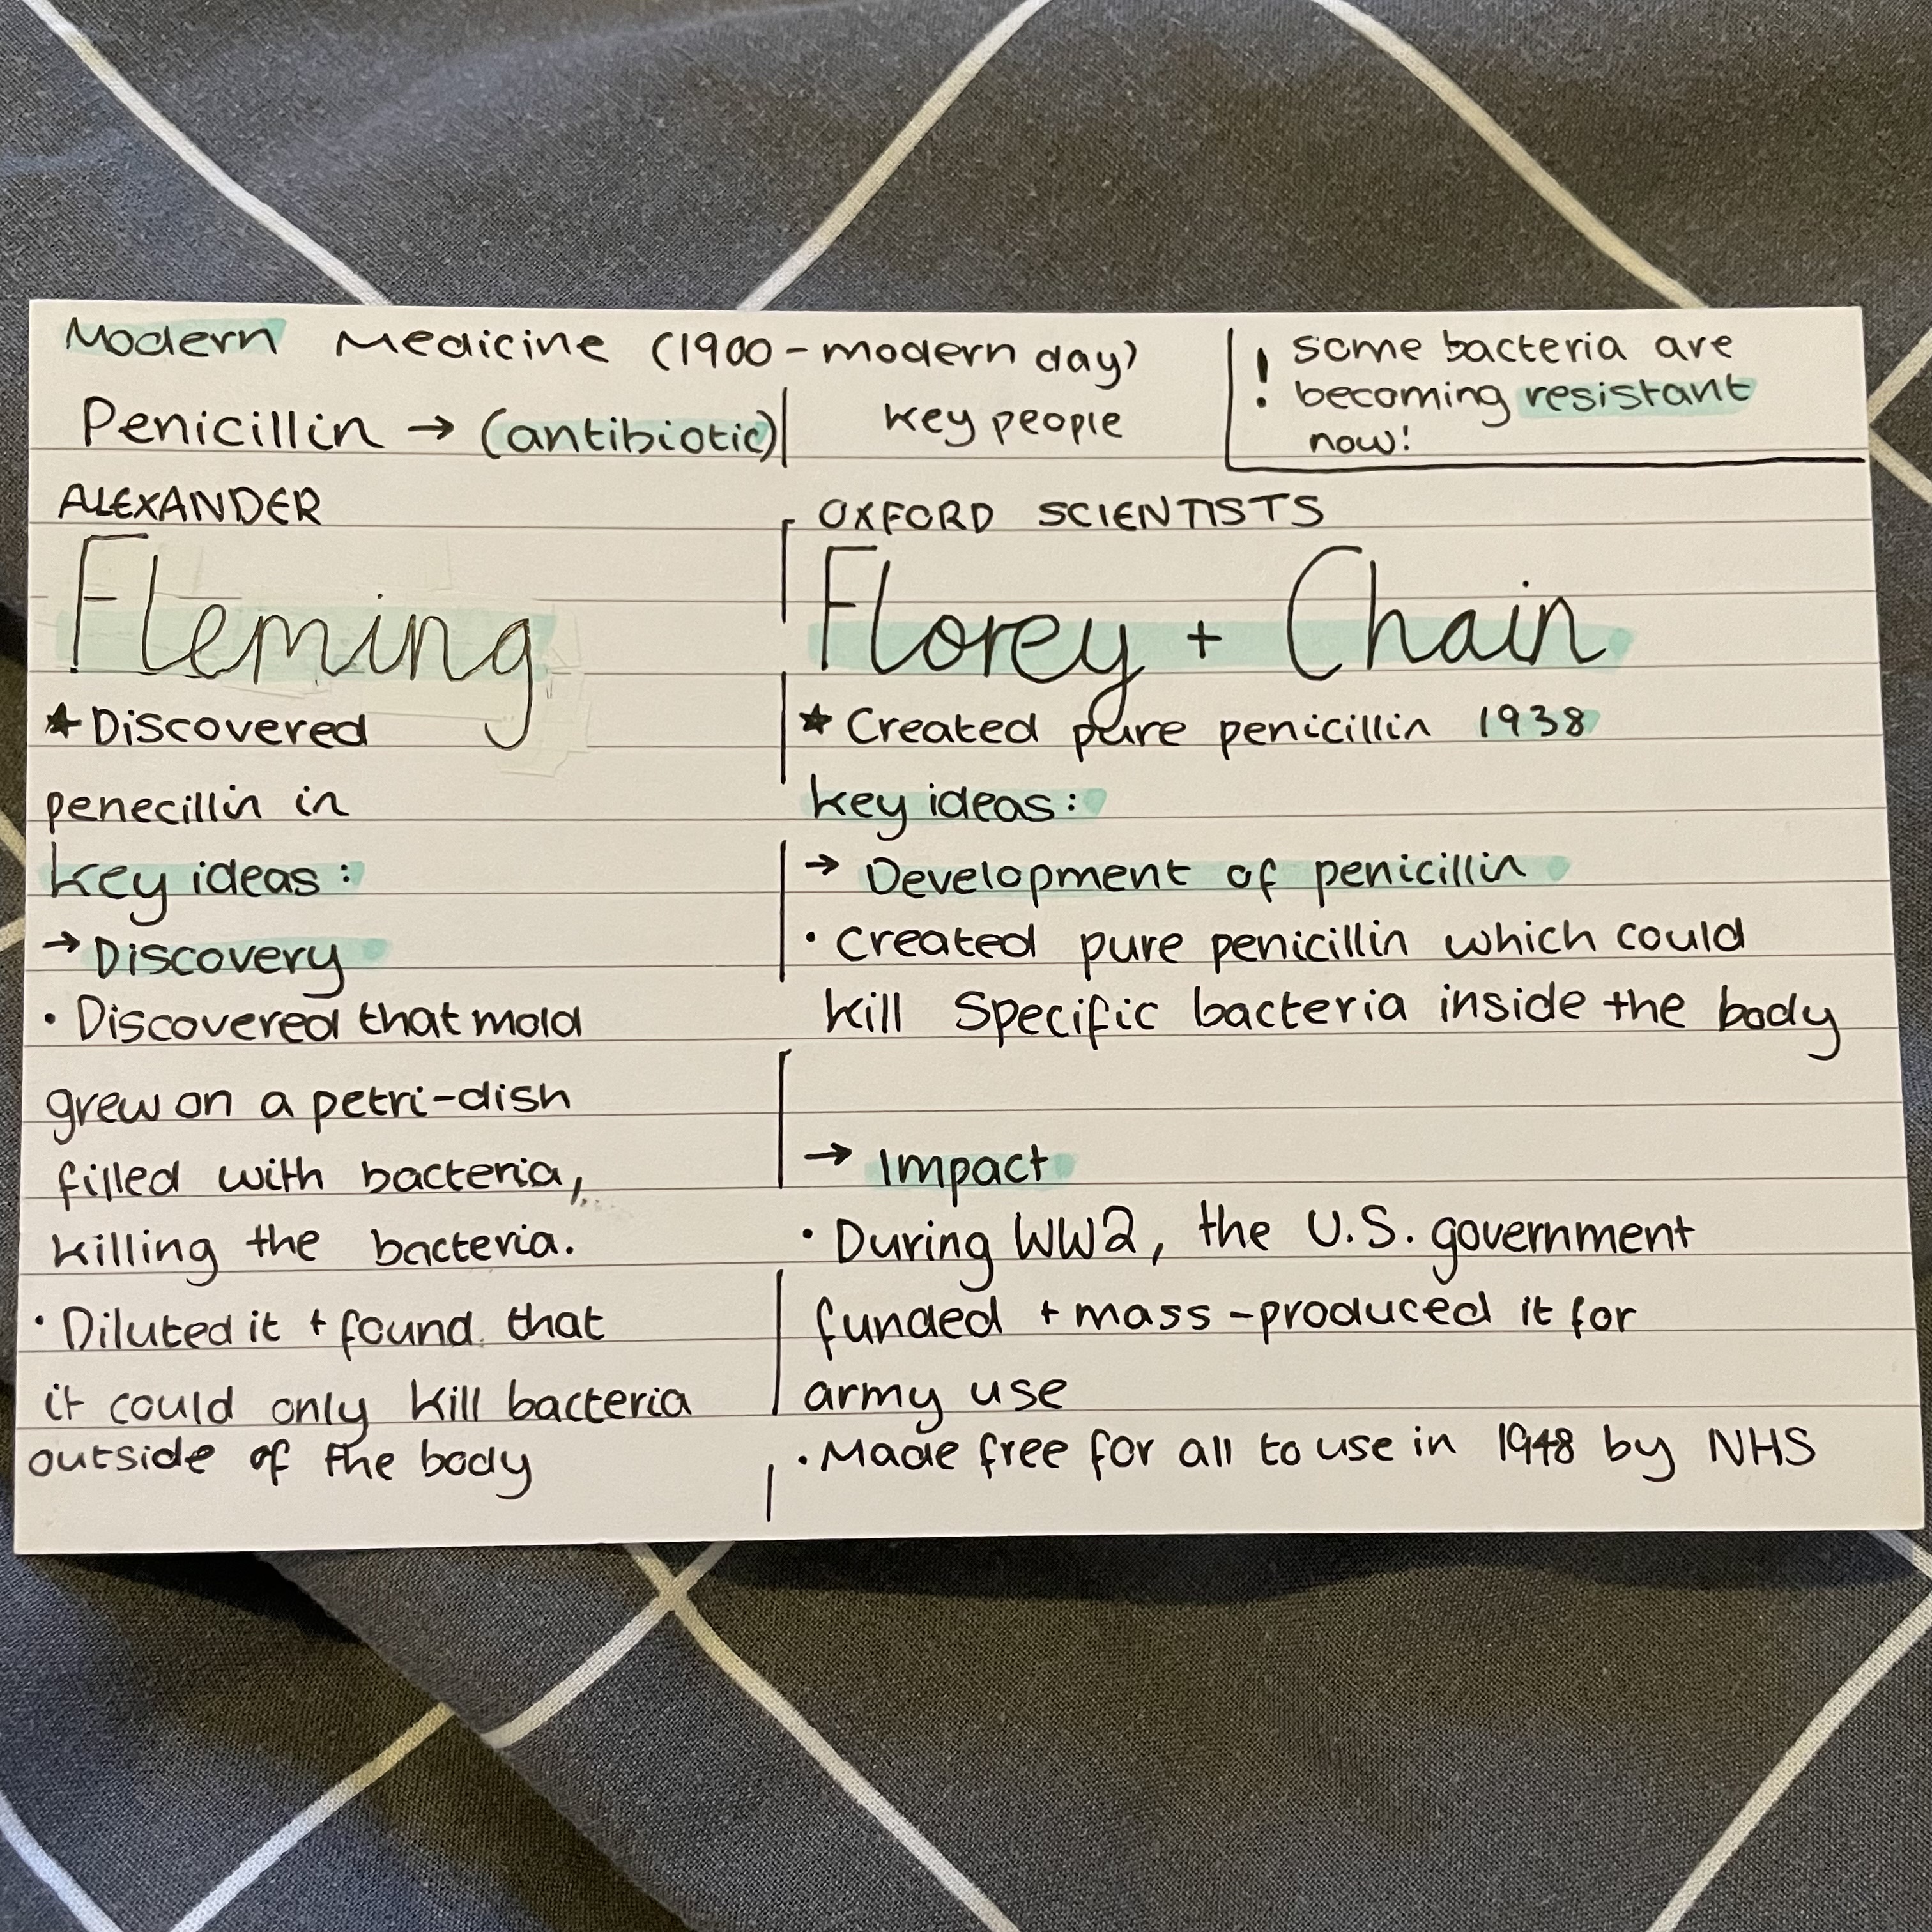 Modern Medicine (1900 - modern day)
Penicillin → (antibiotic)
key people
! some bacteria are
becoming resistant
now!
ALEXANDER
Fleming
★ Discovered
penecillin in
key ideas:
→ Discovery
• Discovered that mold
grew on a petri-dish
filled with bacteria,
killing the bacteria.
• Diluted it + found that
it could only kill bacteria
outside of the body
OXFORD SCIENTISTS
Florey + Chain
★ Created pure penicillin 1938
key ideas:
→ Development of penicillin
• Created pure penicillin which could
kill specific bacteria inside the body
→ Impact
• During WW2, the U.S. government
funded + mass-produced it for
army use
• Made free for all to use in 1948 by NHS